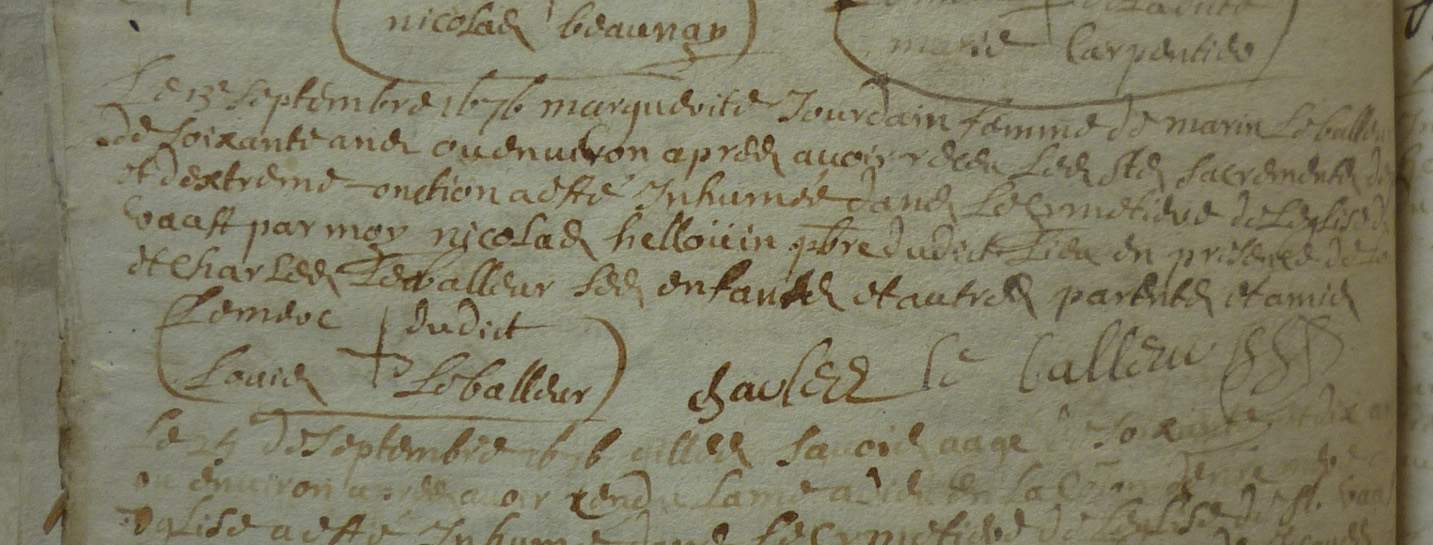 nicolas beaunay
marie Carpentier
Le 13e septembre 1676 marguerite Jourdain femme de marin Leballeur
de soixante ans ou environ apres avoir receu Les Stes sacrements de
et dextreme onction a esté Inhumée dans Le Cymetiere de Leglise de
vaast par moy nicolas helloüin pbre dudict Lieu en presence de
et Charles Leballeur ses enfants et autres parents et amis
Lemerc dudict
Louis Leballeur
charles le balleur
Le 24 de septembre 1676 gilles savoie aage de soixante et dix
ou environ apres avoir rendu Lame a dieu en la
Eglise a esté Inhumé dans Le Cymetiere de Leglise de St. vaast